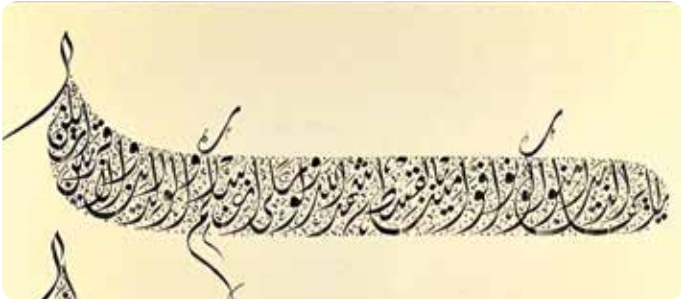 يا أيها الذين آمنوا كونوا قوامين بالقسط شهداء لله ولو على أنفسكم أو الوالدين والأقربين